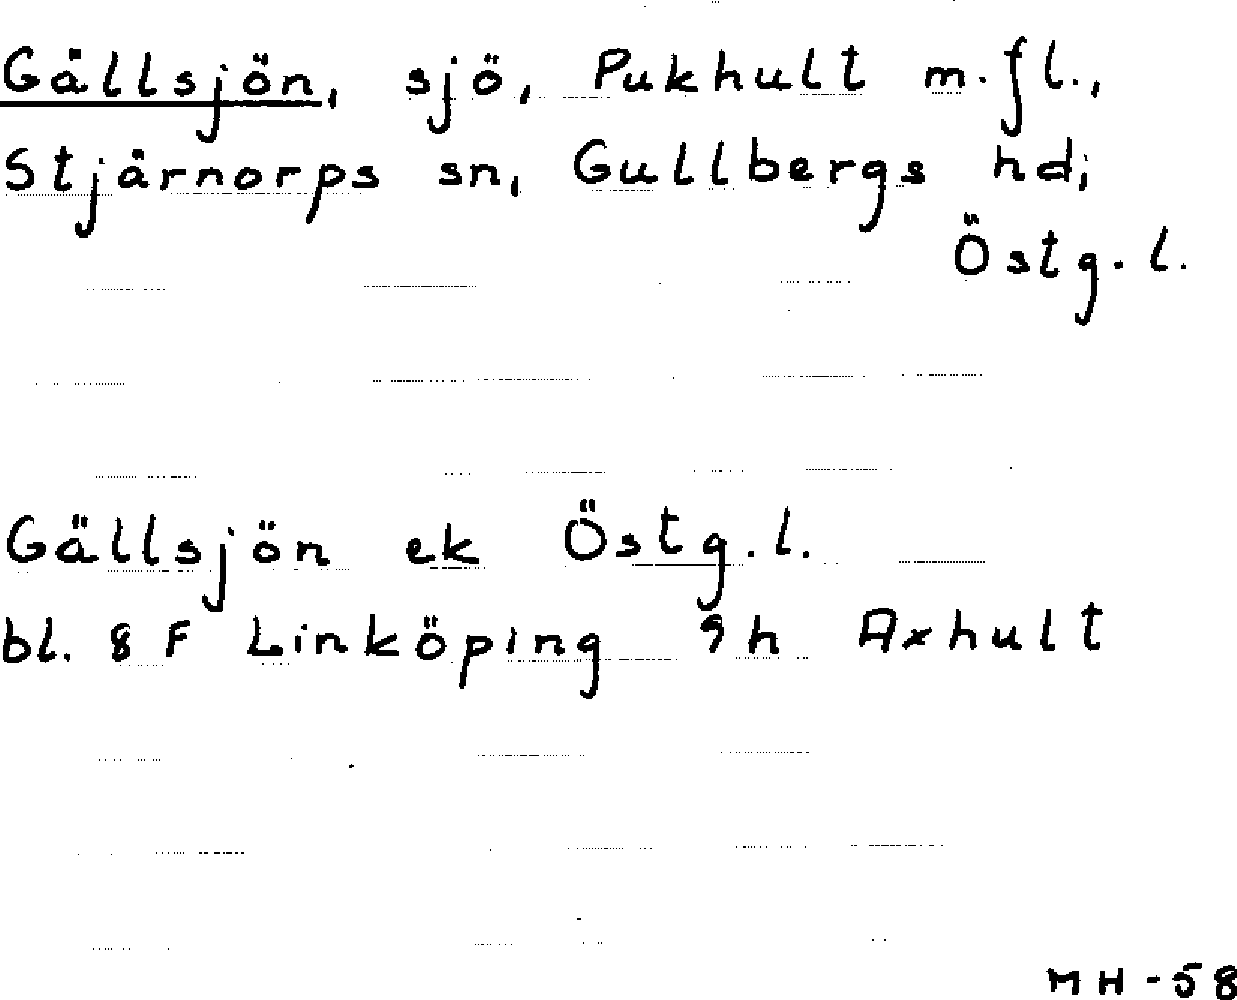 Gällsjön, sjö, Pukhult m.fl.,
Stjärnorps sn, Gullbergs hd;
Östg.l.
Gällsjön ek Östg.l.
bl. 8 F Linköping 9h Axhult
MH-58